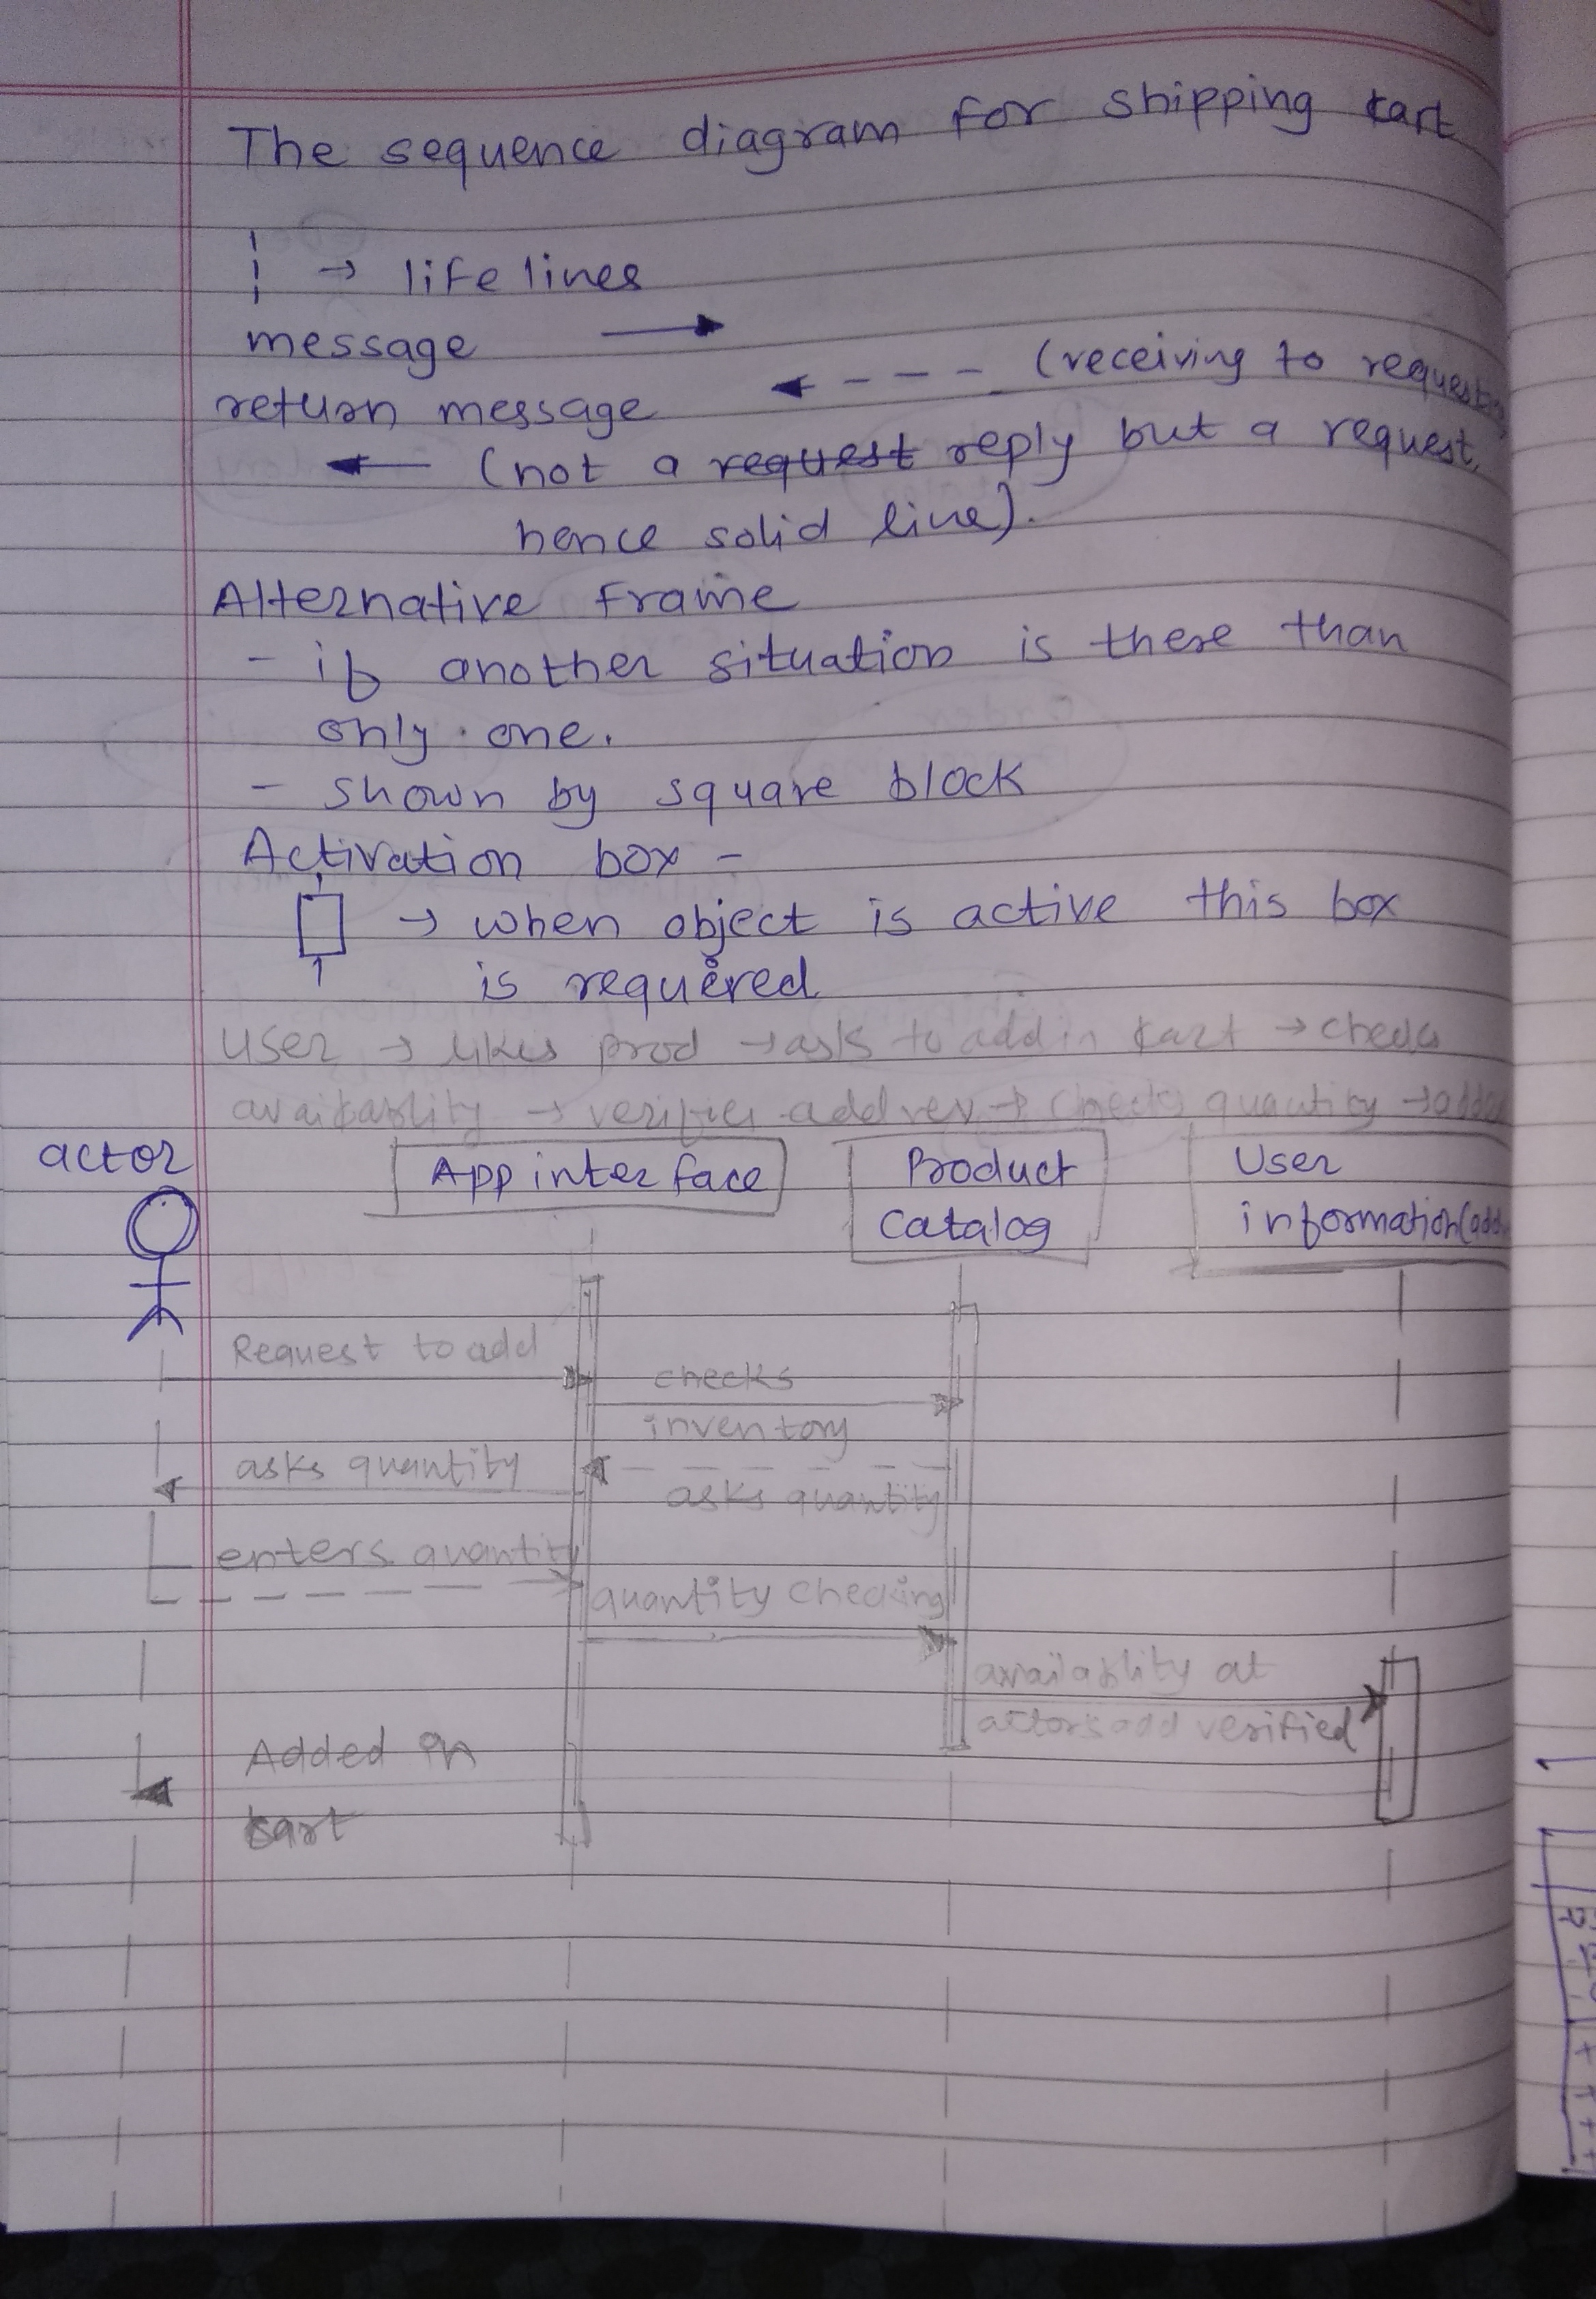 The sequence diagram for shipping kart
→ life lines
message →
return message ← - - - (receiving to requesting
← (not a request reply but a request,
hence solid line).
Alternative frame
- if another situation is there than
only one.
- shown by square block
Activation box -
→ when object is active this box
is required
User → likes prod → ask to add in kart → checks
→ verifies address → checks quantity →
actor
App interface
Product
Catalog
User
information(add
Request to add
checks
inventory
asks quantity
asks quantity
enters quantity
quantity checking
availablity at
actors add verified
Added in
kart